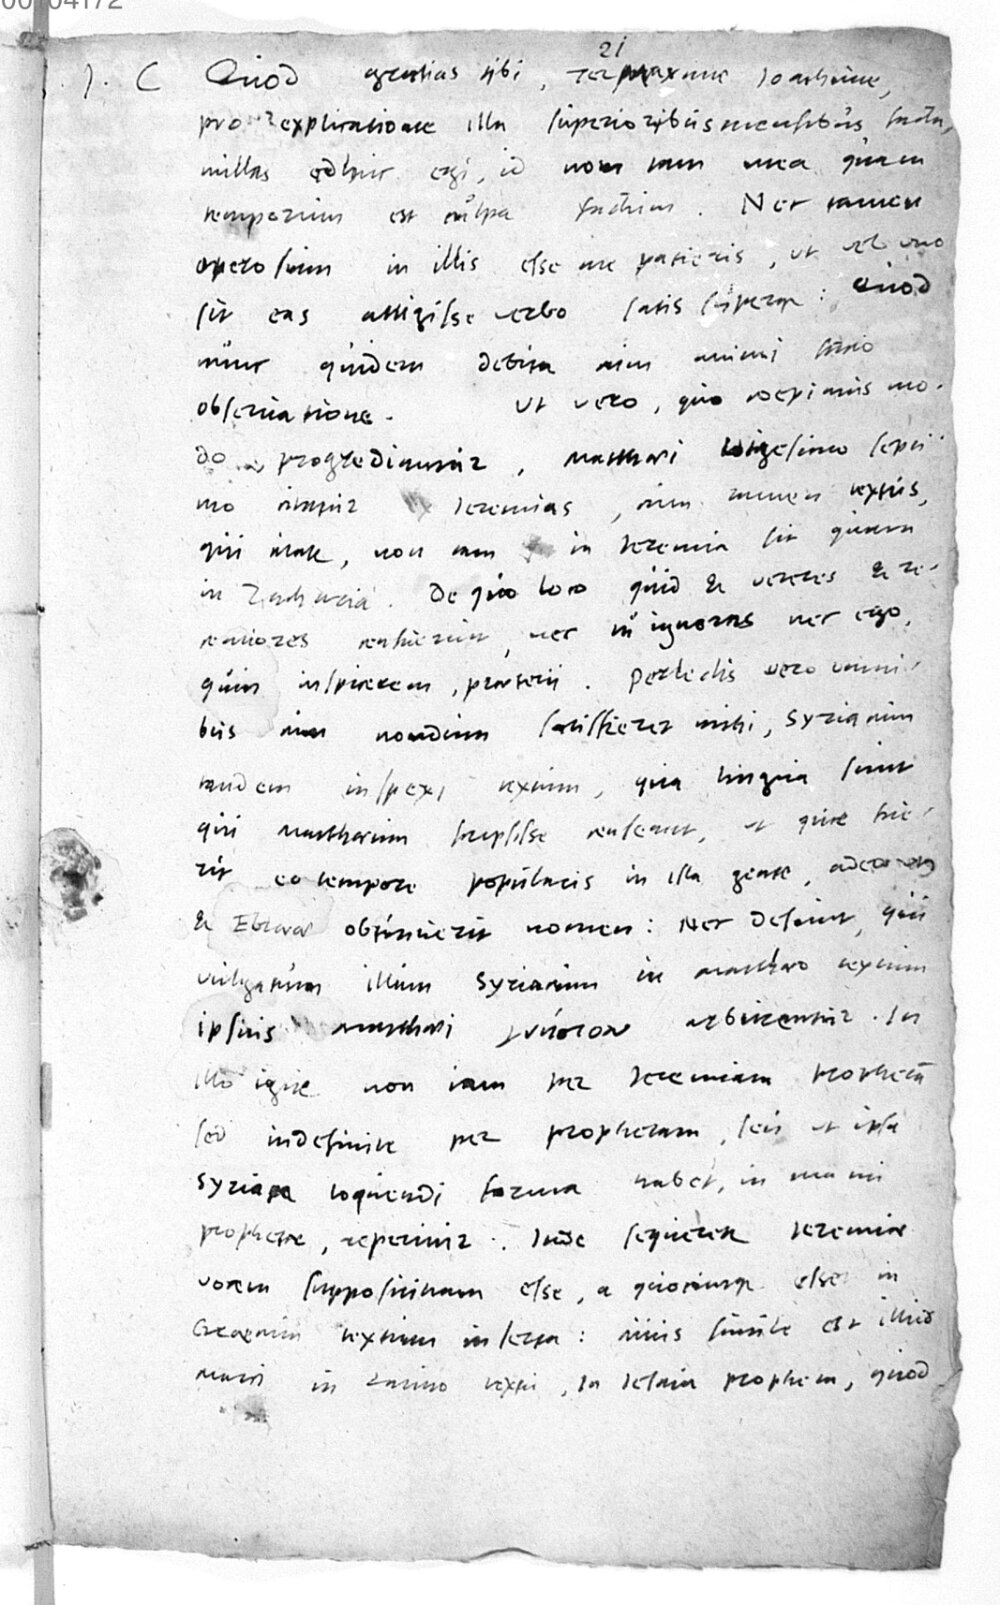 00104172
21
J. C Quod gratias tibi, Ter maxime Ioachime,
pro explicatione illa superioribus mensibus facta,
nullas adhuc egi, id non tam mea quam
temporum est culpa factum. Nec tamen
operosum in illis esse me patieris, ut vel uno
sit eas attigisse verbo satis superque: Quod
nunc quidem debita cum animi
observatione. Ut vero, quo coepimus mo-
do progrediamur, Matthaei vigesimo septi-
mo citatur Ieremias, cum tamen textus,
qui citate, non tam in Ieremia sit quam
in Zacharia. De quo loco quid & veteres & re-
centiores censuerint, nec tu ignoras nec ego,
quin inspicerem, praeterii. Perlectis vero omni-
bus cum nondum satisfieret mihi, Syriacum
tandem inspexi textum, qua lingua sunt
qui Matthaeum scripsisse censeant, ut quae fue-
rit eo tempore popularis in ista gente, adeo
& Ebraea obtinuerit nomen: Nec desunt, qui
vulgatum illum Syriacum in Matthaeo textum
ipsius Matthaei γνήσιον arbitrentur. In
illo igitur non iam per Ieremiam prophetam
sed indefinite per prophetam, seu ut ipsa
Syriaca loquendi forma habet, in manu
prophetae, reperitur. Inde sequeretur Ieremiae
vocem supposititiam esse, a quocunque esset in
Graecum textum inserta: cuius simile est illud
Marci in Latino textu, In Iesaia propheta, quod